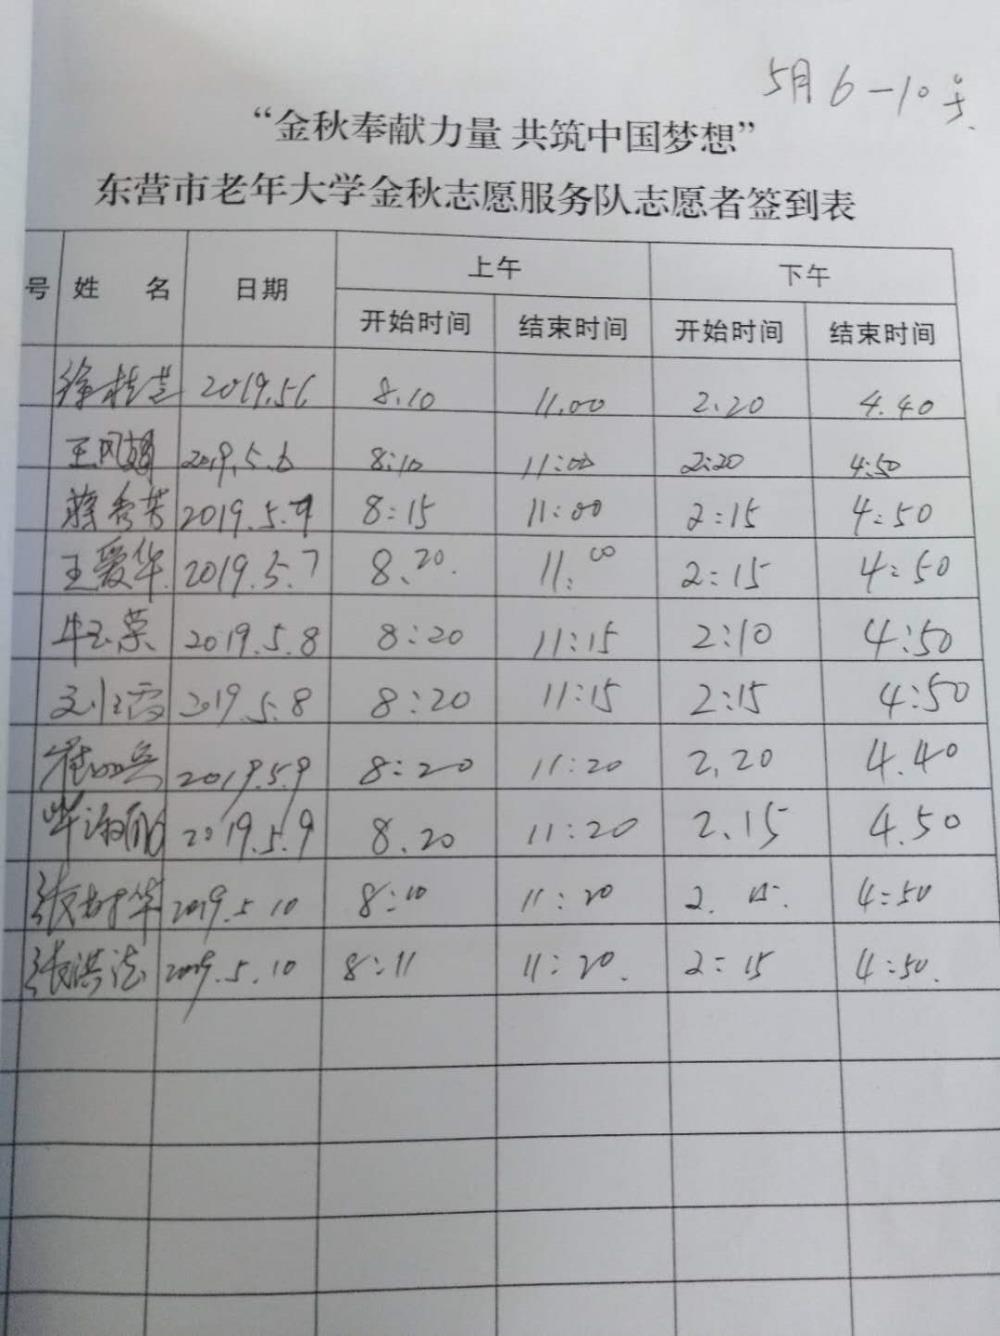 5月6-10号
“金秋奉献力量 共筑中国梦想”
东营市老年大学金秋志愿服务队志愿者签到表
号 姓 名 日期 上午 下午
开始时间 结束时间 开始时间 结束时间
徐桂兰 2019.5.6 8.10 11.00 2.20 4.40
王凤娟 2019.5.6 8:10 11:00 2:20 4:50
蒋秀芳 2019.5.7 8:15 11:00 2:15 4:50
王爱华 2019.5.7 8.20. 11:00 2:15 4:50
牛玉荣 2019.5.8 8:20 11:15 2:10 4:50
2019.5.8 8:20 11:15 2:15 4:50
2019.5.9 8:20 11:20 2.20 4.40
2019.5.9 8.20 11:20 2.15 4.50
张树华 2019.5.10 8:10 11:20 2.15. 4:50
张洪法 2019.5.10 8:11 11:20. 2:15 4:50.